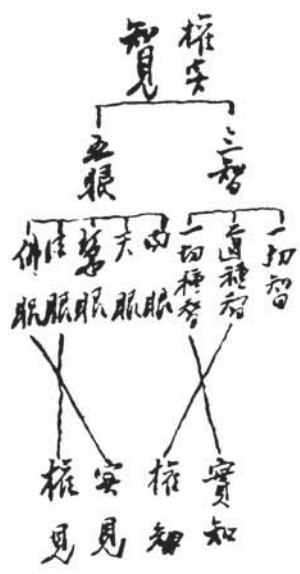 權实
智見
三智
五眼
一切智
道種智
一切種智
肉眼
天眼
慧眼
法眼
佛眼
實知
權知
实見
權見